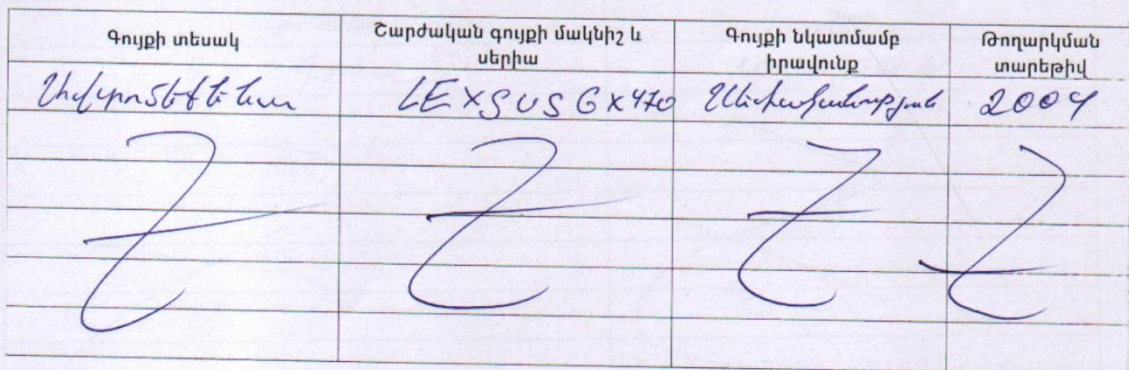 Գույքի տեսակ
Շարժական գույքի մակնիշ և
սերիա
Գույքի նկատմամբ
իրավունք
Թողարկման
տարեթիվ
Ավտոմեքենա LEXSUS GX470 Սեփականության 2004